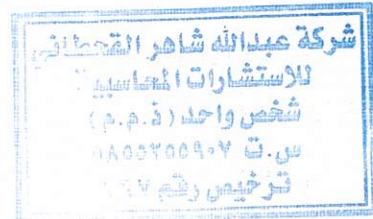 شركة عبدالله شاهر القحطاني
للاستشارات المحاسبية
شخص واحد (ذ.م.م)
س.ت
ترخيص رقم